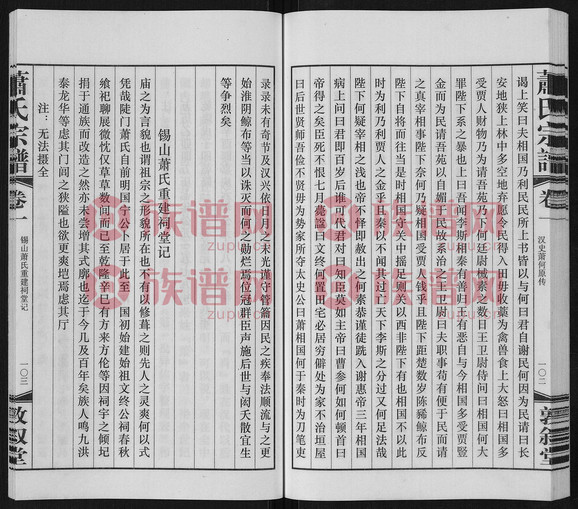 萧氏宗谱
卷一
汉史萧何原传
一〇二
敦叙堂
谒上笑曰夫相国乃利民民所上书皆以与何曰君自谢民何因为民请曰长
安地狭上林中多空地弃愿令民得入田毋收藁为禽兽食上大怒曰相国多
受贾人财物乃为请吾苑乃下何廷尉械系之数日王卫尉侍问曰相国何大
罪陛下系之暴也上曰吾闻李斯相秦有善归主有恶自与今相国多受贾竖
金而为民请吾苑以自媚于民故系治之王卫尉曰夫职事苟有便于民而请
之真宰相事陛下奈何乃疑相国受贾人钱乎且陛下距楚数岁陈豨鲸布反
陛下自将而往当是时相国守关中摇足则关以西非陛下有也相国不以此
时为利乃利贾人之金乎且秦以不闻其过亡天下李斯之分过又何足法哉
陛下何疑宰相之浅也帝不怿即赦出之何素恭谨徒跣入谢惠帝三年相国
病上问曰君即百岁后谁可代君对曰知臣莫如主帝曰曹参何如何顿首曰
帝得之矣臣死不恨七月薨谥曰文终何置田宅必居穷僻处为家不治垣屋
曰后世贤师吾俭不贤毋为势家所夺太史公曰萧相国何于秦时为刀笔吏
录录未有奇节及汉兴依日月之末光谨守管籥因民之疾奉法顺流与之更
始淮阴鲸布等当以诛灭而何之勋烂焉位冠群臣声施后世与闳夭散宜生
等争烈矣
锡山萧氏重建祠堂记
庙之为言貌也谓祖宗之形貌所在也不有以修葺之则先人之灵爽何以式
凭哉陡门萧氏自前明国宁公卜居于此至
国初始建始祖文终公祠春秋
飨祀聊展微忱仅草草数间而已至乾隆辛巳有方来方伦等因祠宇之倾圮
捐于通族而改造之然亦未尝增其式廓也迄于今几及百年矣族人鸣九洪
泰龙华等虑其门闾之狭隘也欲更爽垲焉虑其厅
注：无法摄全
萧氏宗谱
卷一
锡山萧氏重建祠堂记
一〇三
敦叙堂
族谱网